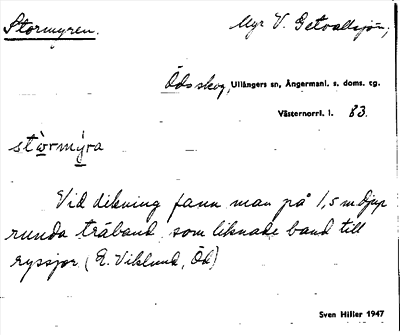 Stormyren.
Myr V. Getvallsjön,
Ödsskog, Ullångers sn, Ångermanl. s. doms. cg.
Västernorrl. l. 83.
stòrmýra
Vid dikning fann man på 1,5 m djup
runda träband som liknade band till
ryssjor (E. Viklund, Öd)
Sven Hiller 1947